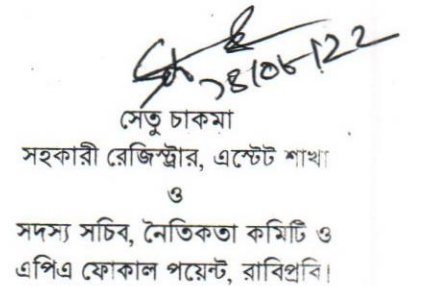 সেতু চাকমা
সহকারী রেজিস্ট্রার, এস্টেট শাখা
ও
সদস্য সচিব, নৈতিকতা কমিটি ও
এপিএ ফোকাল পয়েন্ট, রাবিপ্রবি।